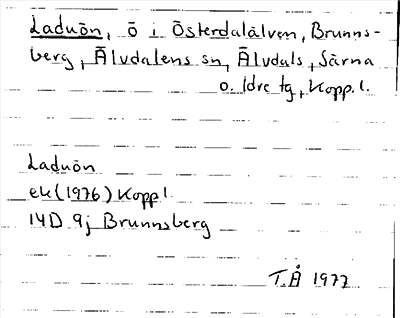 Laduön, ö i Österdalälven, Brunns-
berg, Älvdalens sn, Älvdals, Särna
o. Idre tg, Kopp. l.
Laduön
ek (1976) Kopp l.
14D 9j Brunnsberg
T.Å 1977